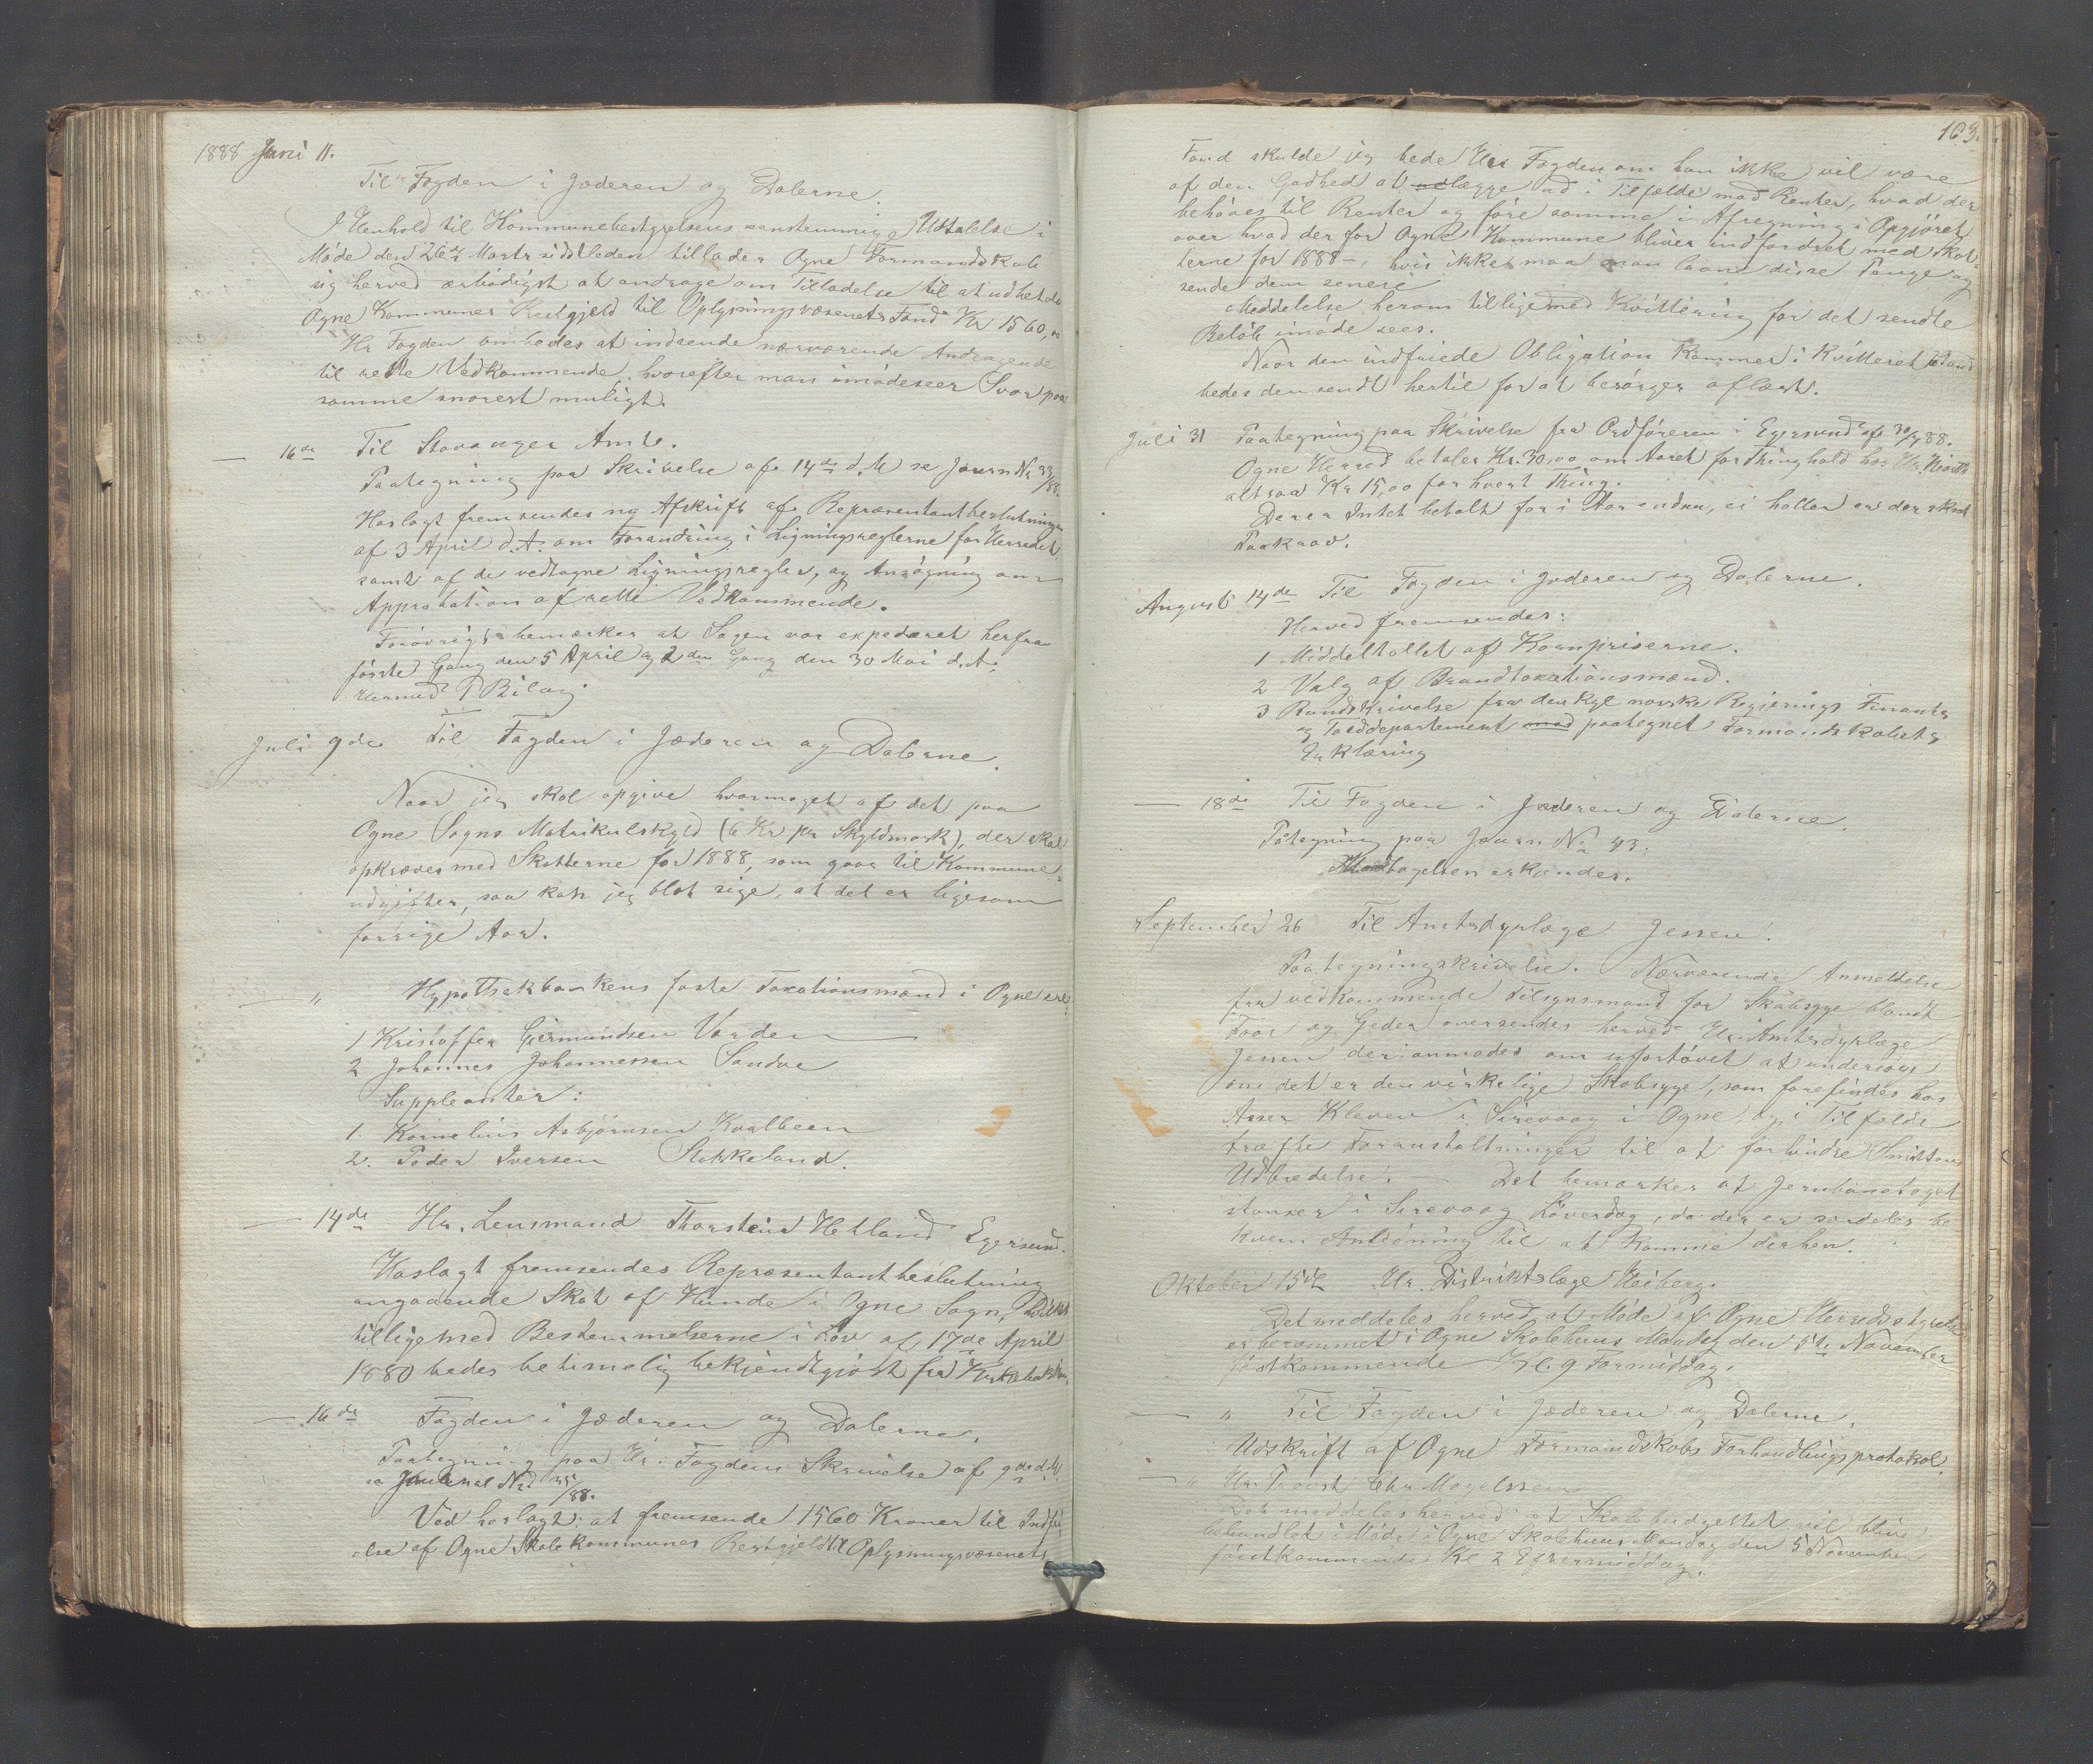 1888 Juni 11.
Til Fogden i Jæderen og Dalerne.
I Henhold til Kommunebestyrelsens enstemmige Udtalelse i
Møde den 26de Marts sidstleden tillader Ogne Formandskab
sig herved ærbødigst at andrage om Tilladelse til at udbetale
Ogne Kommunes Restgjeld til Oplysningsvæsenets Fond Kr 1560,00
Hr Fogden ombedes at indsende nærværende Andragende
til rette Vedkommende, hvorefter man imødeseer Svar paa
samme snarest muligt.
— 16de Til Stavanger Amt.
Paategning paa Skrivelse af 14de d. M se Journ Nr 33/88.
Hoslagt fremsendes ny Afskrift af Repræsentantbeslutningen
af 3 April d. A. om Forandring i Ligningsreglerne for Herredet
samt af de vedtagne Ligningsregler, og Ansøgning om
Approbation af rette Vedkommende.
Forøvrigt bemærkes at Sagen var expederet herfra
første Gang den 5 April og 2den Gang den 30 Mai d. A.
Hermed 1 Bilag
Juli 9de Til Fogden i Jæderen og Dalerne.
Naar jeg skal opgive hvormeget af det paa
Ogne Sogns Matrikulskyld (6 Kr pr Skyldmark), der skal
opkræves med Skatterne for 1888, som gaar til Kommune-
udgifter, saa kan jeg blot sige, at det er ligesom
forrige Aar.
— " Hypothekbankens faste Taxationsmænd i Ogne ere
1 Kristoffer Germundsen Varden
2 Johannes Johannessen Sandve
Suppleanter:
1. Kornelius Asbjørnsen Kvalbeen
2. Peder Iversen Stokkeland.
— 14de Hr. Lensmand Thorstein Hetland Egersund.
Hoslagt fremsendes Repræsentantbeslutning
angaaende Skat af Hunde i Ogne Sogn, hvilket
tilligemed Bestemmelserne i Lov af 17de April
1880 bedes betimelig bekjendtgjort fra Kirkebakken.
— 16de Fogden i Jæderen og Dalerne.
Paategning paa Hr. Fogdens Skrivelse af 9de d. M.
se Journal Nr. 35/88.
Ved hoslagt at fremsende 1560 Kroner til Indfri-
else af Ogne Skolekommunes Restgjeld til Oplysningsvæsenets
163.
Fond skulde jeg bede Hr Fogden om han ikke vil være
af den Godhed at lægge ud i Tilfælde med Renter, hvad der
behøves til Renter og føre samme i Afregning i Opgjøret
over hvad der for Ogne Kommune bliver indfordret med Skat-
terne for 1888 —, hvis ikke maa man laane disse Penge og
sende dem senere
Meddelelse herom tilligemed Kvittering for det sendte
Beløb imøde sees.
Naar den indfriede Obligation kommer i kvitteret Stand
bedes den sendt hertil for at besørges aflæst.
Juli 31 Paategning paa Skrivelse fra Ordføreren i Egersund af 30/7 88.
Ogne Herred betaler Kr. 30,00 om Aaret for Thinghold hos Hr.
altsaa Kr 15,00 for hvert Thing.
Der er Intet betalt for i Aar endnu, ei heller er der skeet
Paakrav.
August 14de Til Fogden i Jæderen og Dalerne.
Herved fremsendes:
1 Middeltallet af Kornpriserne.
2 Valg af Brandtaxationsmænd.
3 Rundskrivelse fra den Kgl norske Regjerings Finants
og Tolddepartement med paategnet Formandskabets
Erklæring
— 18de Til Fogden i Jæderen og Dalerne.
Påtegning paa Journ. Nr 43.
Modtagelsen erkjendes.
September 26 Til Amtsdyrlæge Jessen.
Paategningskrivelse. Nærværende Anmeldelse
fra vedkommende Tilsynsmand for Skabsyge blandt
Faar og Geder oversendes herved Hr. Amtsdyrlæge
Jessen der anmodes om ufortøvet at undersøge
om det er den virkelige Skabsyge, som forefindes hos
Asser Kleven i Sirevaag i Ogne, og i Tilfælde
træffe Foranstaltninger til at forhindre Smittens
Udbredelse. — Det bemærkes at Jernbanetoget
stanser i Sirevaag Løverdag, da der er særdeles be
kvem Anledning til at komme derhen.
Oktober 15de Hr. Distriktslæge Heiberg.
Det meddeles herved at Møde af Ogne Herredsstyrelse
er berammet i Ogne Skolehuus Mandag den 5te November
førstkommende Kl. 9 Formiddag.
— " Til Fogden i Jæderen og Dalerne.
Udskrift af Ogne Formandskabs Forhandlingsprotokol.
— " Hr. Provst Chr Magelssen
Det meddeles herved at Skolebudgettet vil blive
behandlet i Møde i Ogne Skolehuus Mandag den 5 November
førstkommende Kl 2 Eftermiddag.